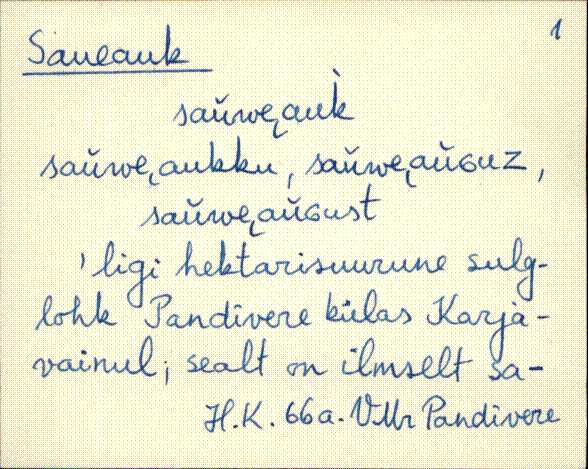 1
Saueauk
saŭwe̮auk̀
saŭwe̮aukku, saŭwe̮aŭɢuz,
saŭwe̮aŭɢust
'ligi hektarisuurune sulg-
lohk Pandivere külas Karja-
vainul; sealt on ilmselt sa-
H.K. 66a. VMr Pandivere